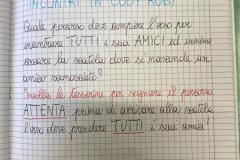 INCONTRI IN CODY ROBY
Quale percorso deve compiere l'orso per
incontrare TUTTI i suoi AMICI ed insieme
trovare la scatola dove si nasconde un
amico sconosciuto?
Incolla le tesserine per segnare il percorso.
ATTENTA: prima di arrivare alla scatola
l'orso deve prendere TUTTI i suoi amici!